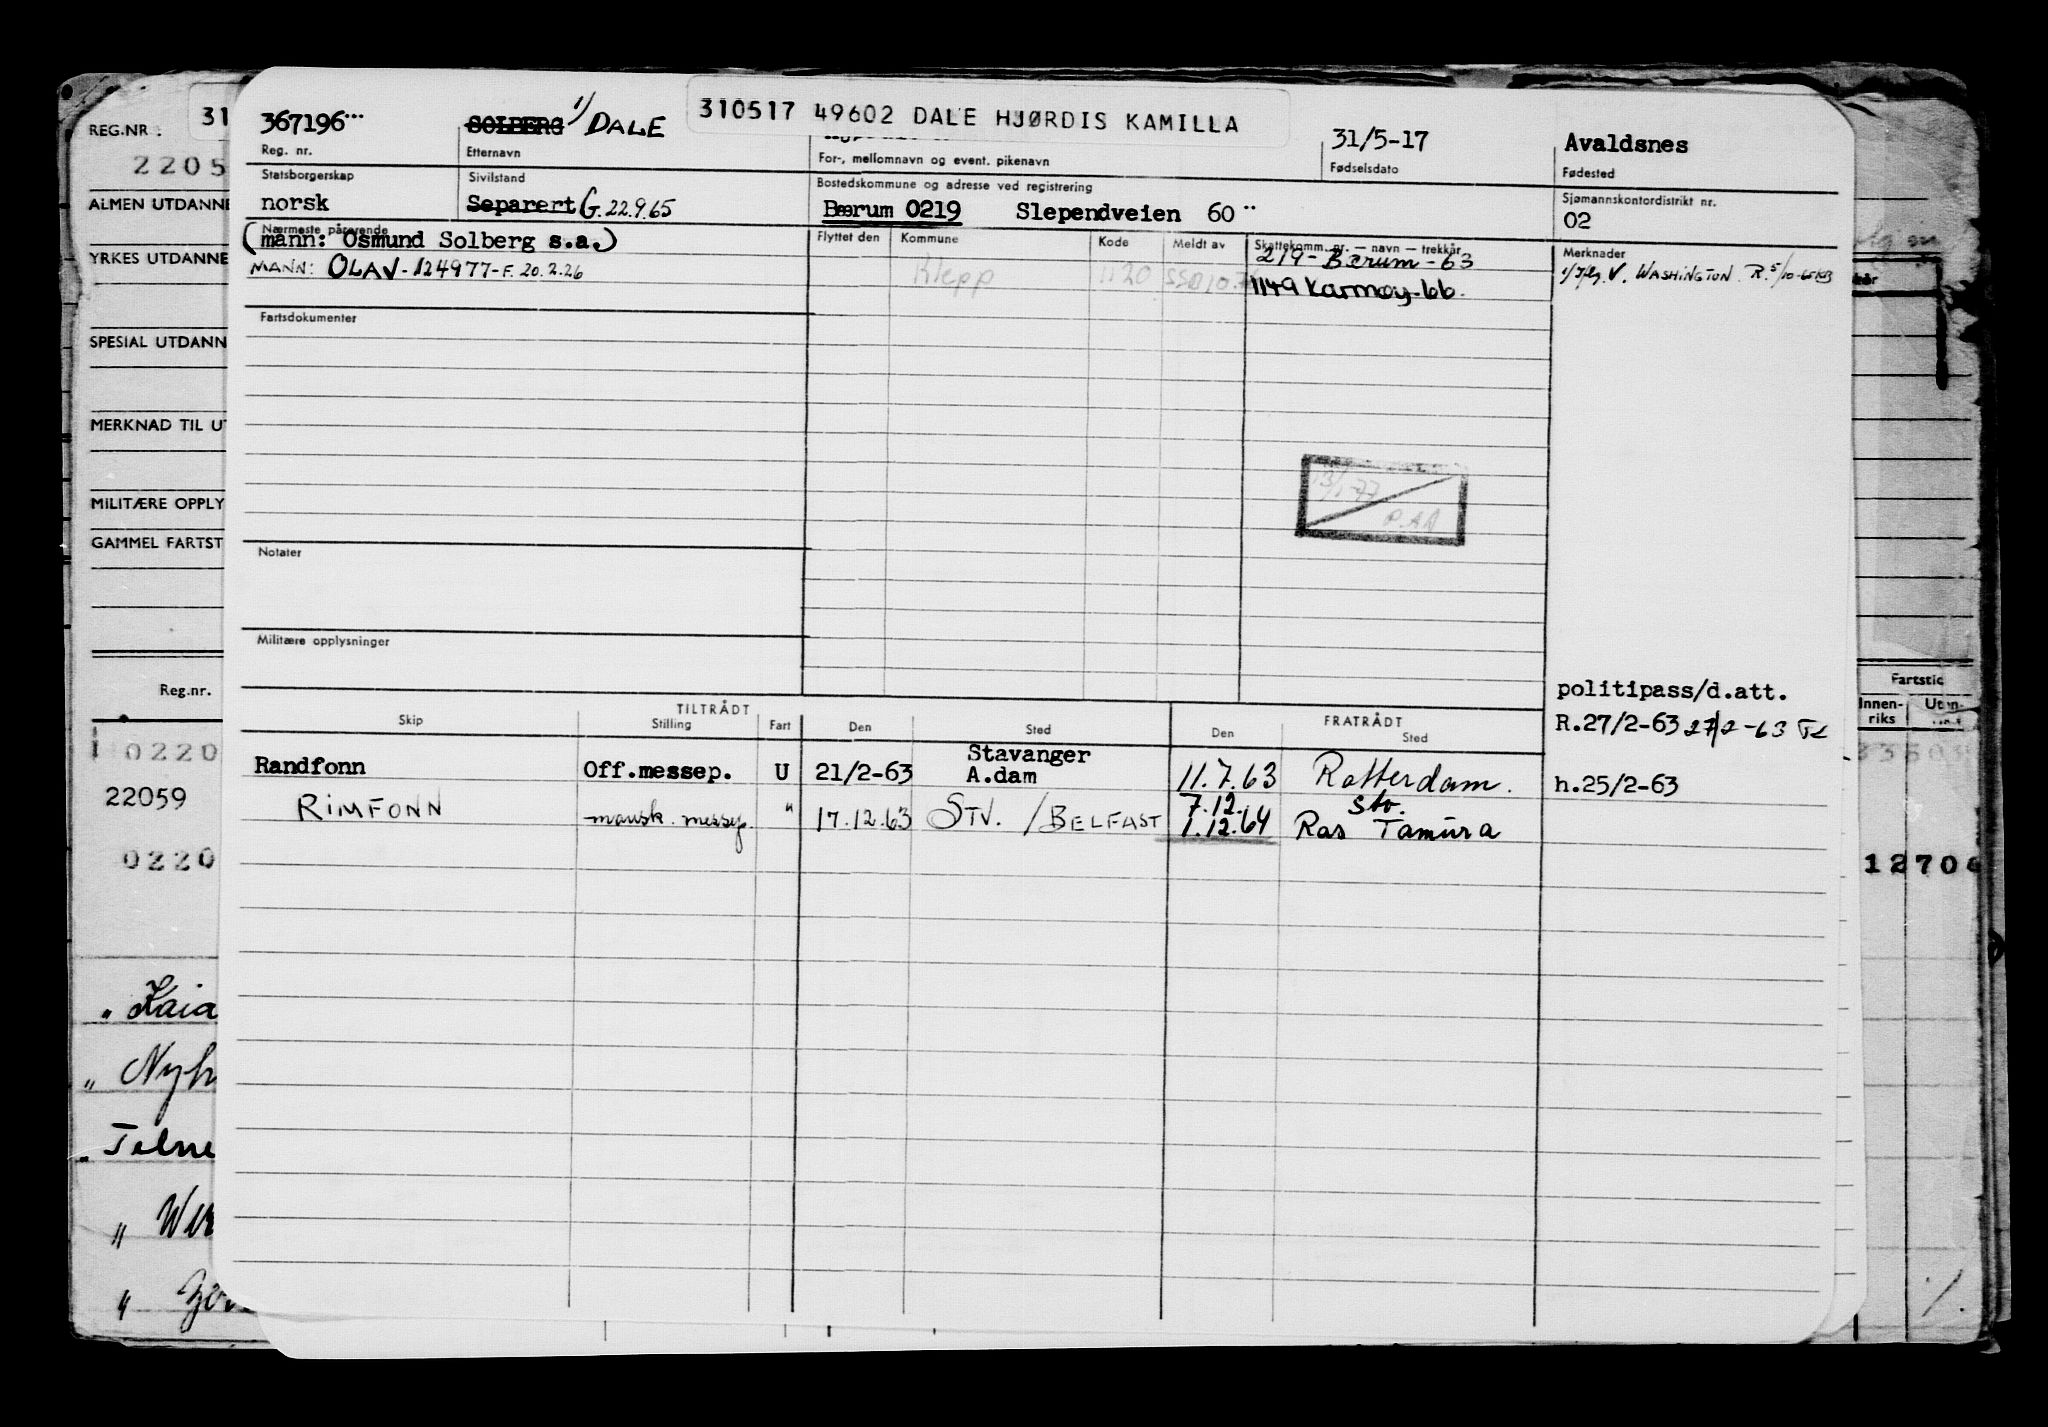 310517 49602 DALE HJØRDIS KAMILLA
367196
SOLBERG 1/ DALE
31/5-17
Avaldsnes
Reg. nr.
Etternavn
For-, mellomnavn og event. pikenavn
Fødselsdato
Fødested
Statsborgerskap
Sivilstand
Bostedskommune og adresse ved registrering
Sjømannskontordistrikt nr.
norsk
Separert G. 22.9.65
Bærum 0219 Slependveien 60
02
Nærmeste pårørende
Flyttet den
Kommune
Kode
Meldt av
Skattekomm. nr. — navn — trekkår
Merknader
(mann: Osmund Solberg s.a.)
219 - Bærum - 63
MANN: OLAV - 124977 - F. 20.2.26
Klepp
1120
1149 Karmøy - 66.
V. WASHINGTON R. 5/10-65
Fartsdokumenter
13/1-77
Notater
Militære opplysninger
politipass/d.att.
R.27/2-63 27/2-63
h.25/2-63
TILTRÅDT
FRATRÅDT
Skip
Stilling
Fart
Den
Sted
Den
Sted
Randfonn
Off.messep.
U
21/2-63
Stavanger
A.dam
11.7.63
Rotterdam.
RIMFONN
mansk. messep.
"
17.12.63
STV. / BELFAST
7.12.
Stv.
1.12.64
Ras Tamura
REG.NR.
31
2205
ALMEN UTDANNE
YRKES UTDANNE
SPESIAL UTDANN
MERKNAD TIL UT
MILITÆRE OPPLY
GAMMEL FARTST
Reg.nr.
0220
22059
0220
" Kaia
" Nyh
" Telne
"
"
Fartstid
Innen-
riks
Uten-
12706